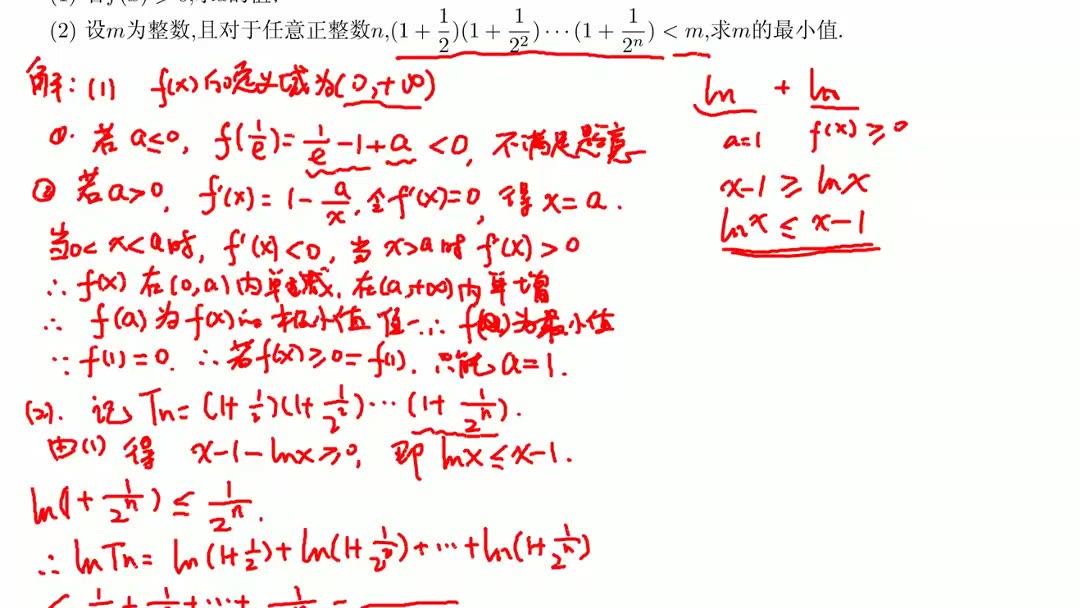 (2) 设m为整数,且对于任意正整数n,(1+1/2)(1+1/2²)⋯(1+1/2ⁿ)<m,求m的最小值.
解: (1) f(x)的定义域为(0,+∞)
ln + ln
①. 若a≤0, f(1/e)=1/e-1+a<0, 不满足题意
a=1 f(x)≥0
② 若a>0, f'(x)=1-a/x, 令f'(x)=0, 得x=a.
x-1≥lnx
lnx≤x-1
当0<x<a时, f'(x)<0, 当x>a时f'(x)>0
∴ f(x)在(0,a)内单减, 在(a,+∞)内单增
∴ f(a)为f(x)的极小值 ∴ f(a)为最小值
∵ f(1)=0. ∴若f(x)≥0=f(1). 只能a=1.
(2). 记 Tn=(1+1/2)(1+1/2²)⋯(1+1/2ⁿ).
由(1)得 x-1-lnx≥0, 即lnx≤x-1.
ln(1+1/2ⁿ)≤1/2ⁿ.
∴ lnTn=ln(1+1/2)+ln(1+1/2²)+⋯+ln(1+1/2ⁿ)